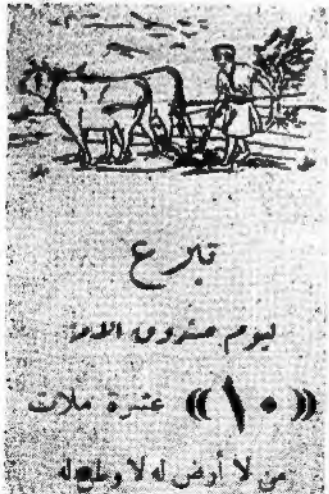 تبرع
ليوم صندوق الامة
((١٠)) عشرة ملات
من لا أرض له لا وطن له